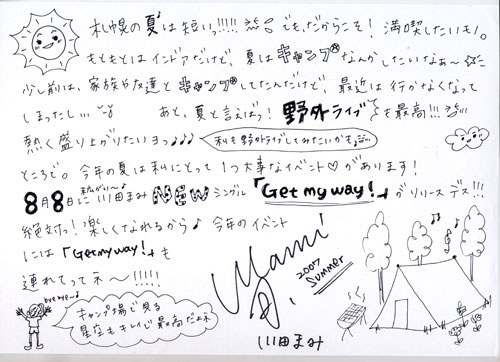 札幌の夏は短いっ!!!!! でも、だからこそ!満喫したいもん。
もともとはインドアだけど、夏はキャンプなんかしたいなぁ〜
少し前は、家族や友達とキャンプしてたんだけど、最近は行かなくなって
しまったし… あと、夏と言えばっ!野外ライブも最高!!!
熱く盛り上がりたいヨっ♪♪♪ 私も野外ライブしてみたいかも
ところで。今年の夏は私にとって1つ大事なイベント♡があります!
8月8日に 川田まみ NEWシングル「Get my way!」がリリースデス!!!
絶対っ!楽しくなれるから♪ 今年のイベント
には「Get my way!」も
連れてってネ〜!!!!!
byebye~♪
キャンプ場で見る
星空もキレイで最高だよネ
Mami
2007
Summer
川田まみ